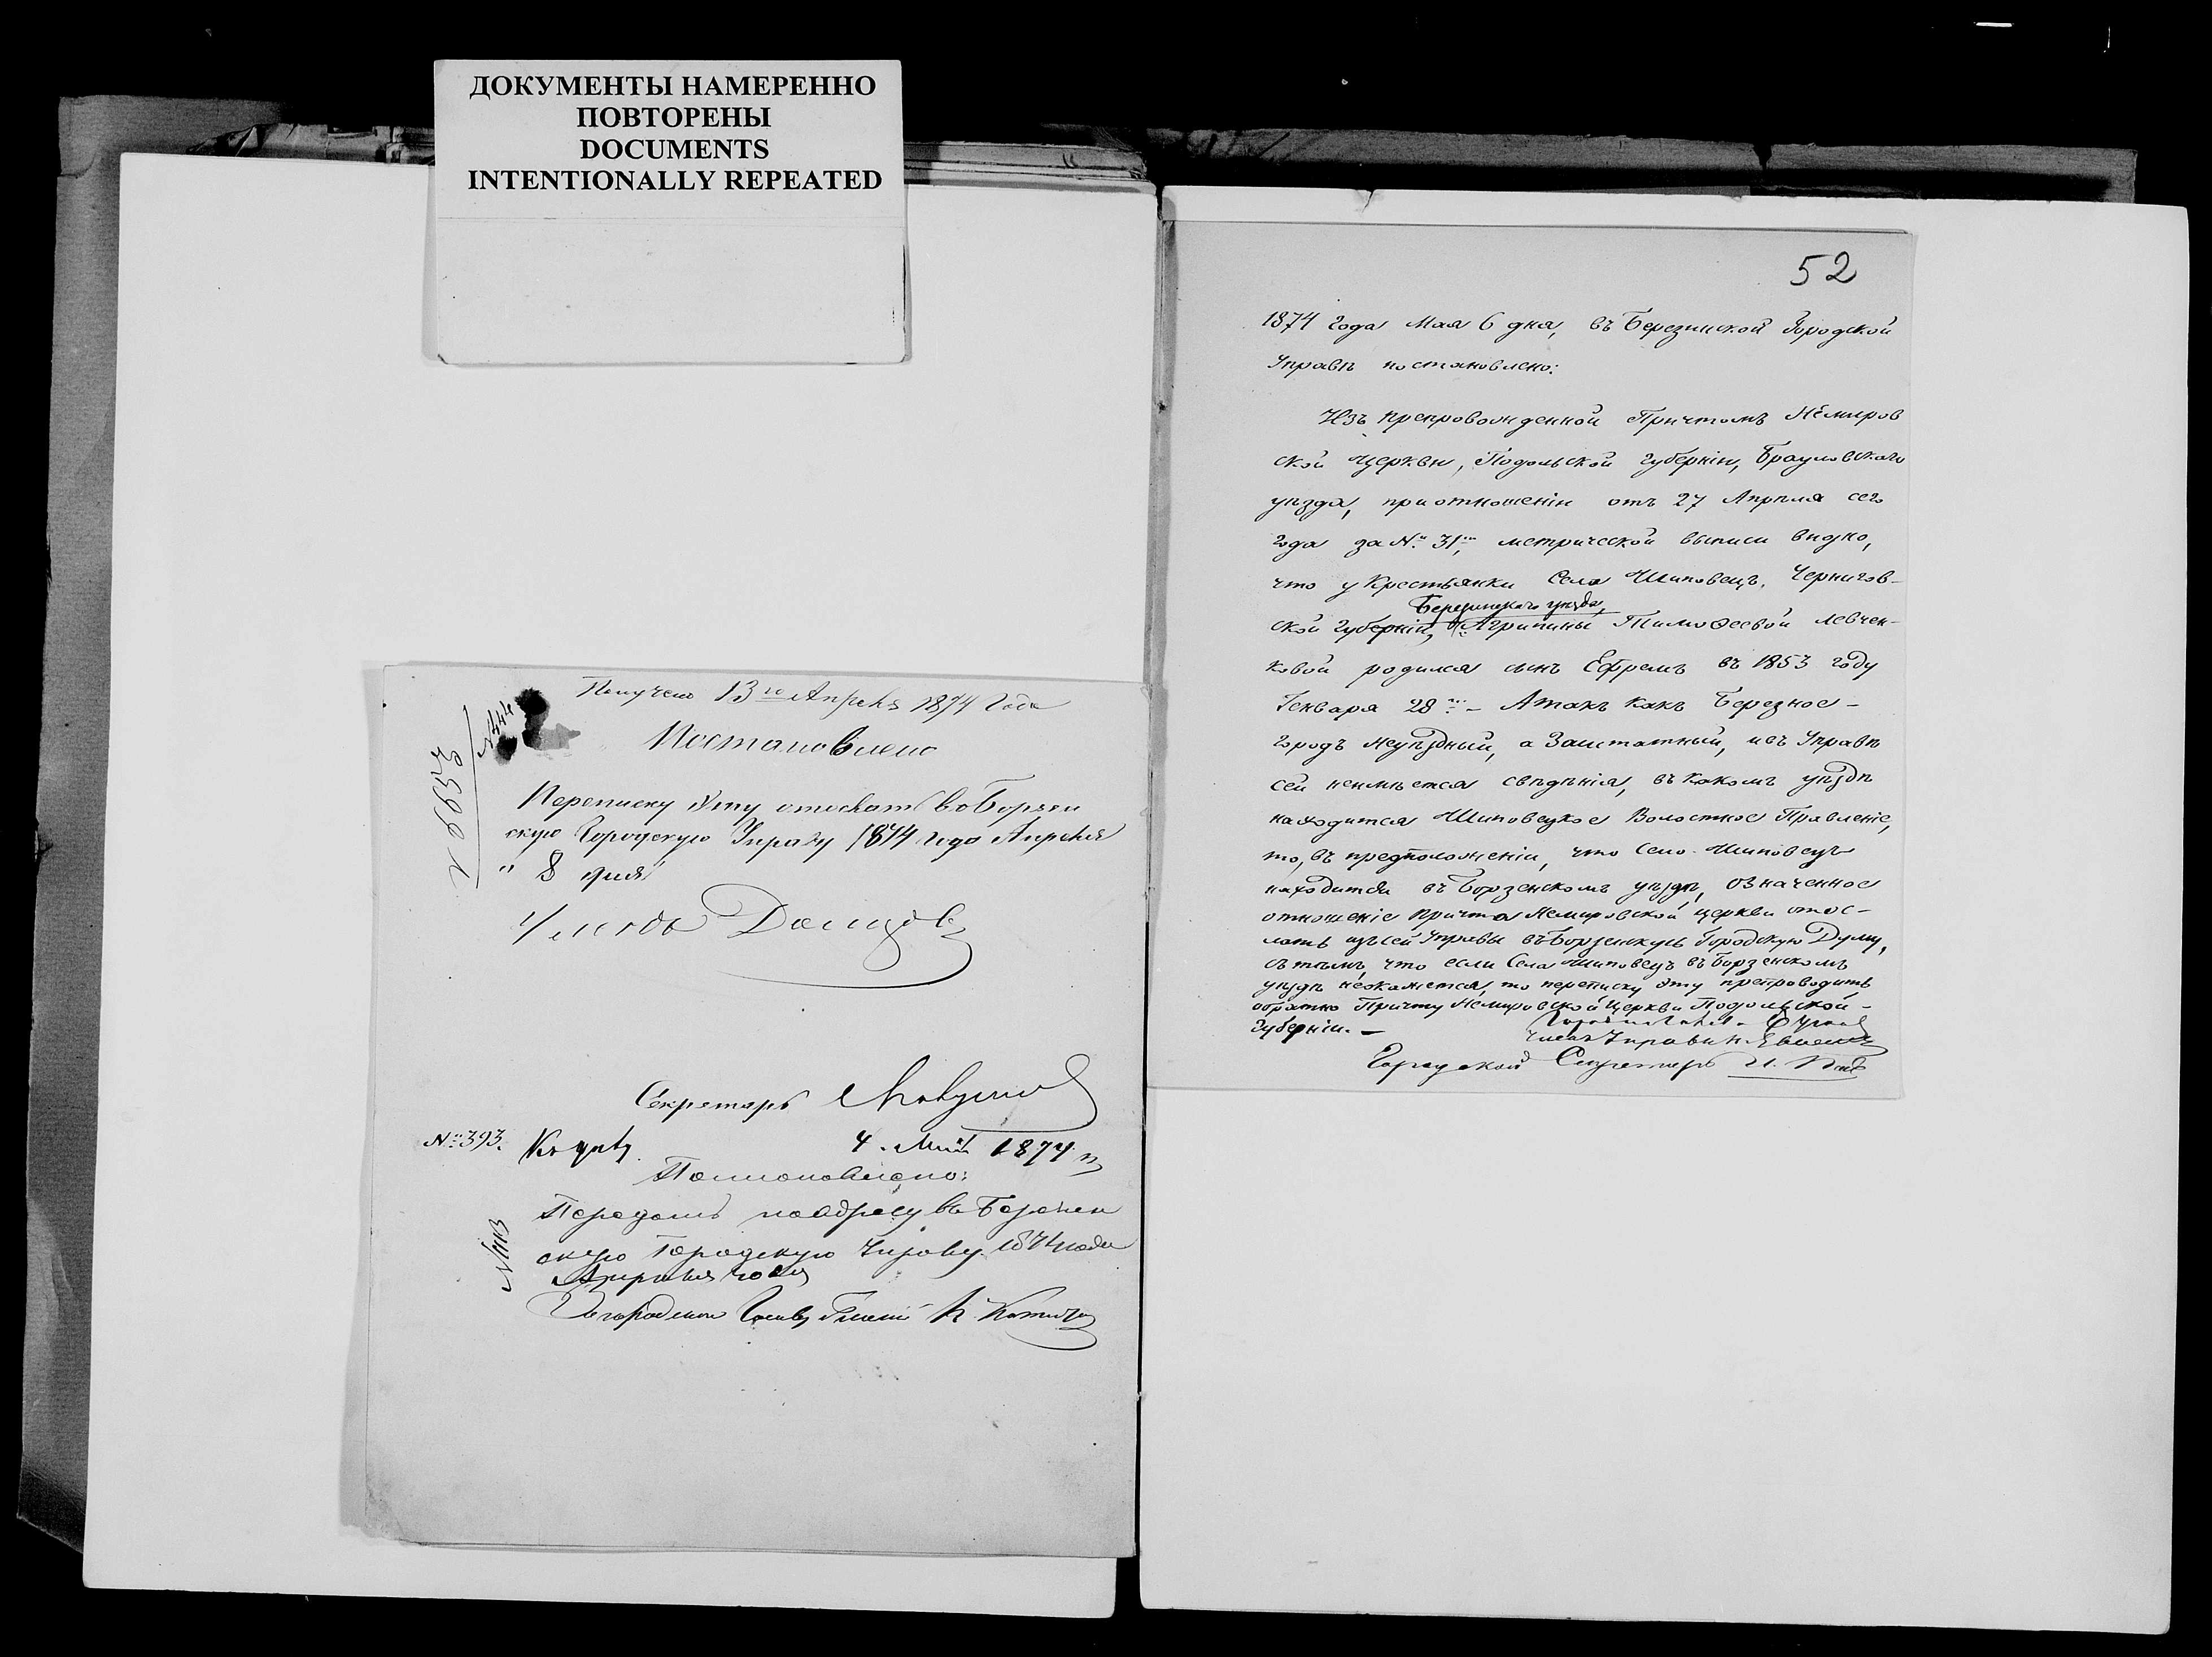 ДОКУМЕНТЫ НАМЕРЕННО
ПОВТОРЕНЫ
DOCUMENTS
INTENTIONALLY REPEATED
Получено 13го Апреля 1874 Года
Постановлено
Переписку эту отослать во Борзен
скую Городскую Управу 1874 года Апреля
" 8 дня
Секретарь
№ 393.
4. 1874
Постановлено:
Передать по адресу въ
скую Городскую Управу 1874 года
52
1874 года Мая 6 дня, въ Березинской Городской
Управѣ постановлено:
Изъ препровожденной Причтомъ Немиров
ской Церкви, Подольской губерніи, Брацловскаго
уѣзда, при отношеніи отъ 27 Апрѣля сего
года за № 31, метрической выписи видно,
что у Крестьянки Села Шиповецъ, Чернигов-
Березинскаго уѣзда,
ской Губерніи, Агрипины Тимофеевой Левчен-
ковой родился сынъ Ефремъ въ 1853 году
Генваря 28 - А такъ какъ Березное -
городъ Неуѣздный, а Заштатный, и въ Управѣ
сей неимѣется свѣдѣнія, въ какомъ уѣздѣ
находится Шиповецкое Волостное Правленіе,
то, въ предположеніи, что Село Шиповецъ
находится въ Борзенскомъ уѣздѣ, означенное
отношеніе Причта Немировской церкви отос-
лать изъ сей Управы въ Борзенскую Городскую Думу,
съ тѣмъ, что если Села Шиповецъ въ Борзенскомъ
уѣздѣ неокажется, то переписку эту препроводить
обратно Причту Немировской Церкви Подольской
Губерніи. -
Членъ Управы
Городской Секретарь